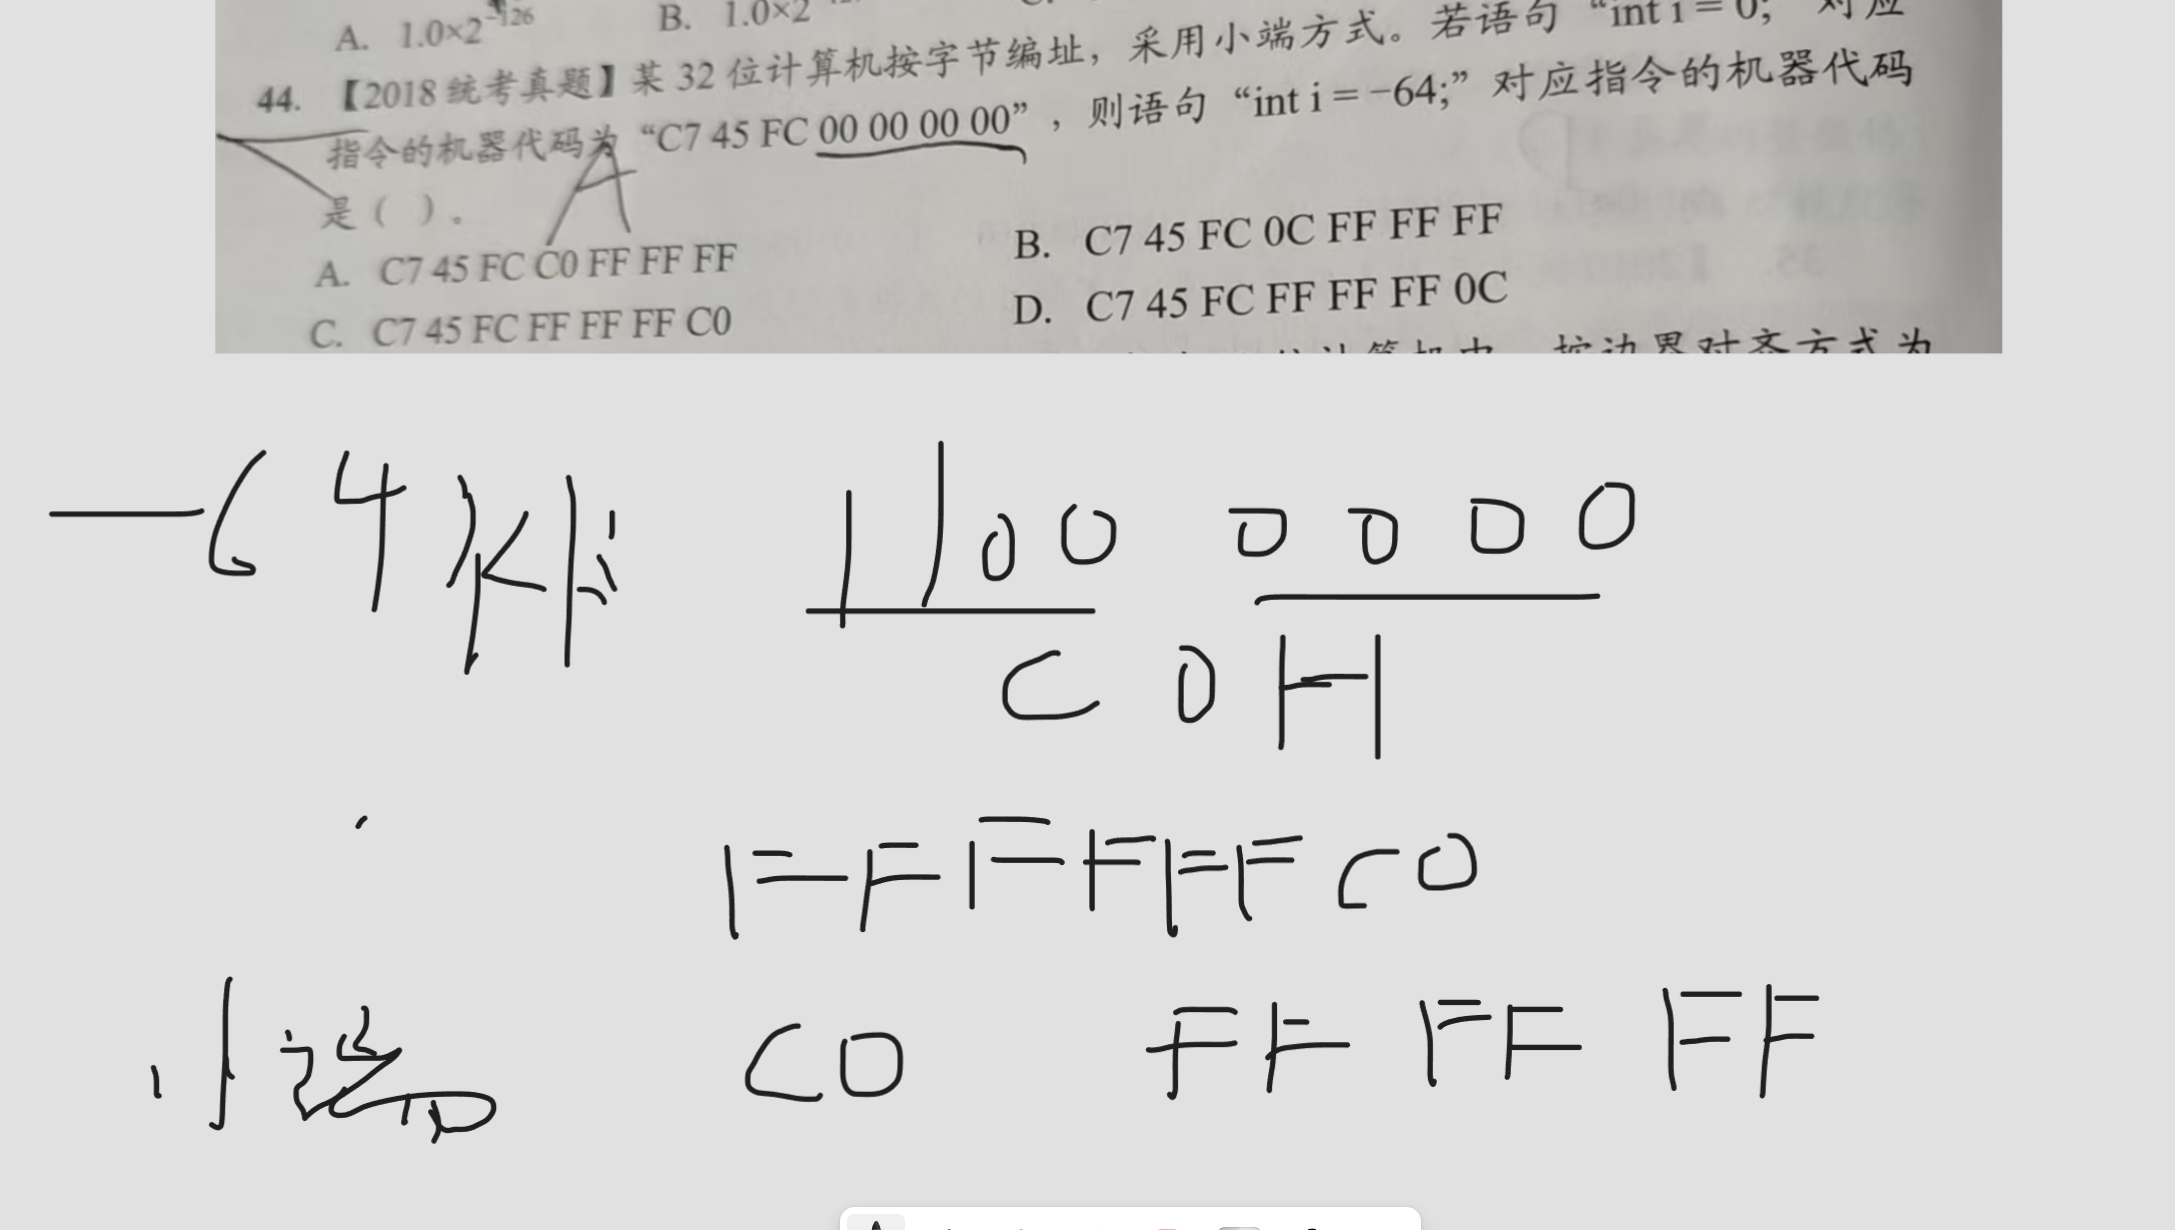 A. 1.0×2^-126 B. 1.0×2
44. 【2018统考真题】某 32 位计算机按字节编址，采用小端方式。若语句“int i = 0;”对应
指令的机器代码为“C7 45 FC 00 00 00 00”，则语句“int i = −64;”对应指令的机器代码
是（ ）。
A
A. C7 45 FC C0 FF FF FF B. C7 45 FC 0C FF FF FF
C. C7 45 FC FF FF FF C0 D. C7 45 FC FF FF FF 0C
按边界对齐方式为
-64 补 1100 0000
C0H
FFFFFFC0
小端 C0 FF FF FF